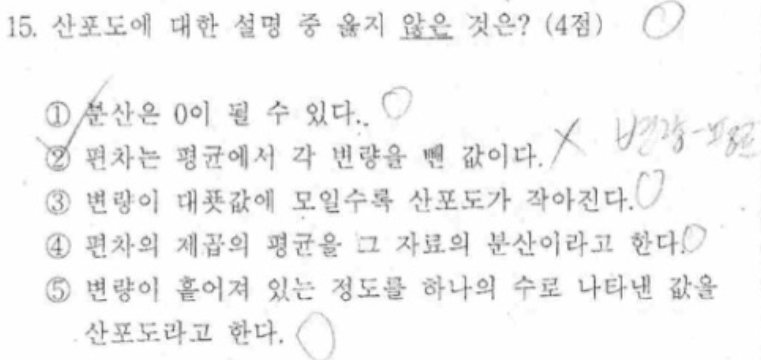 15. 산포도에 대한 설명 중 옳지 않은 것은? (4점)
① 분산은 0이 될 수 있다.
② 편차는 평균에서 각 변량을 뺀 값이다. X 변량-평균
③ 변량이 대푯값에 모일수록 산포도가 작아진다.
④ 편차의 제곱의 평균을 그 자료의 분산이라고 한다.
⑤ 변량이 흩어져 있는 정도를 하나의 수로 나타낸 값을
산포도라고 한다.